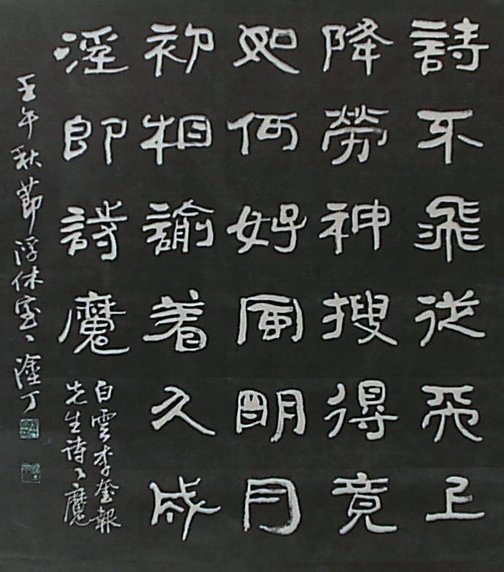 詩不飛從天上
降勞神搜得竟
如何好風明月
初相諭着久成
淫即詩魔
白雲李奎報
先生詩々魔
壬午秋節浮休室